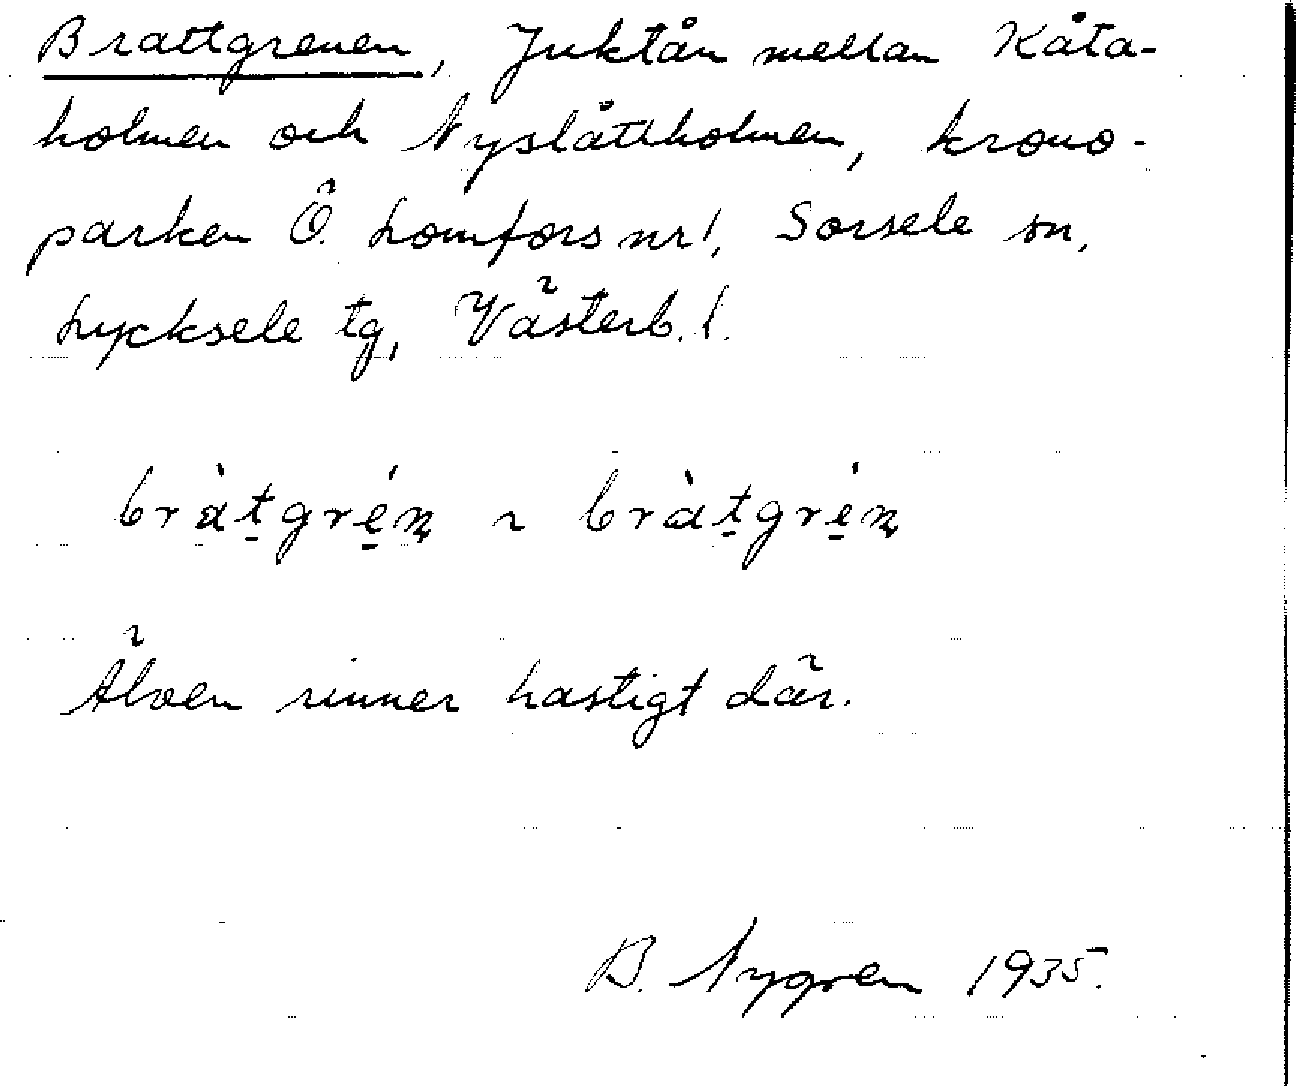 Brattgrenen, Juktån mellan Kåta-
holmen och Nyslåttholmen, krono-
parken Ö. Lomfors nr 1, Sorsele sn,
Lycksele tg, Västerb. l.
bràtgrén ~ bràtgrèn
Älven rinner hastigt där.
B. Nygren 1935.